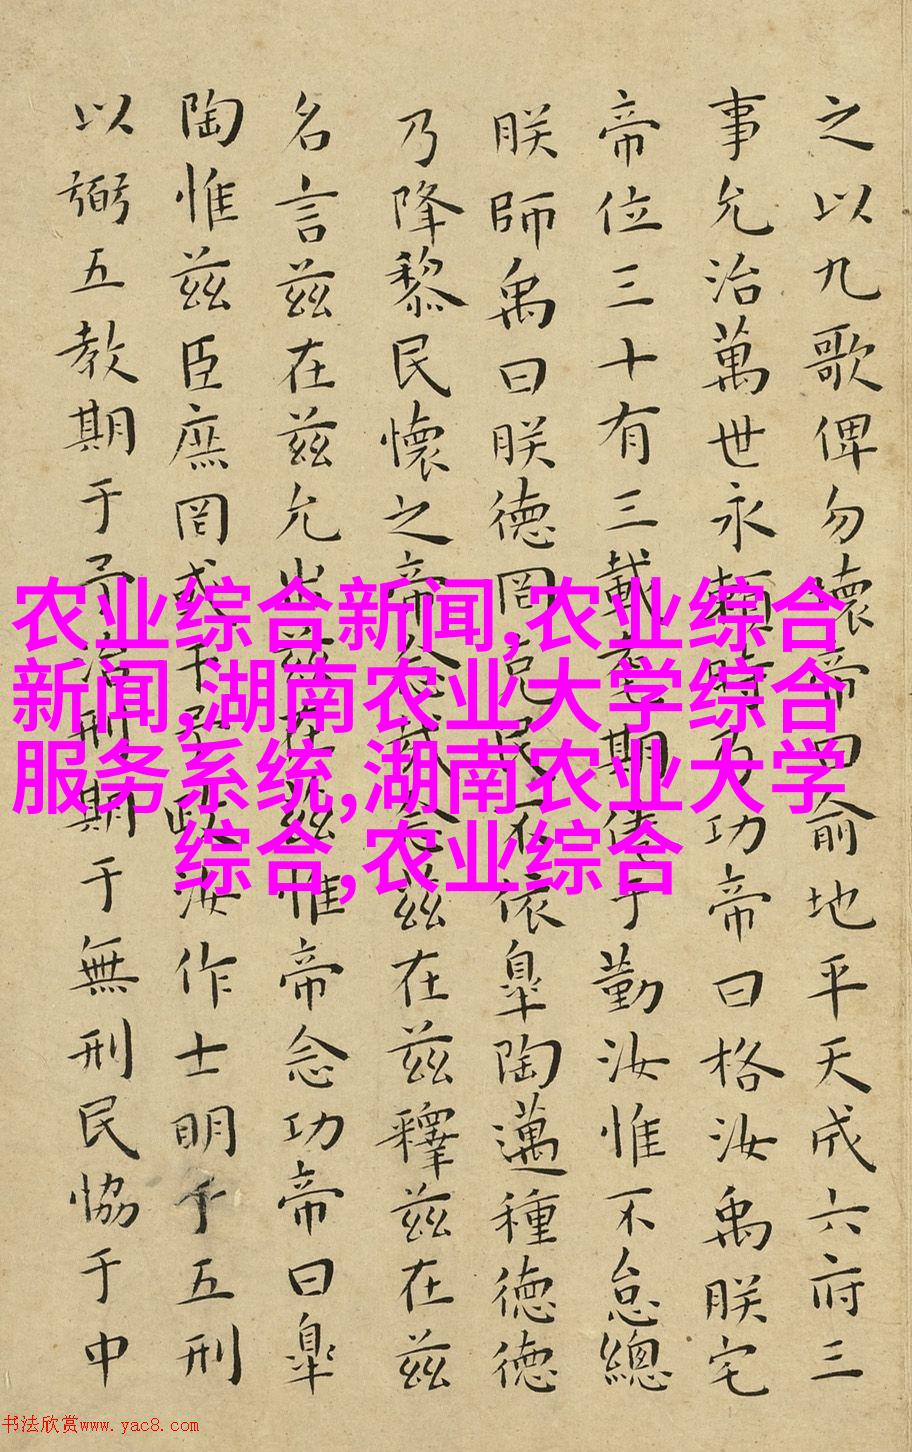 之以九歌俾勿壞帝曰俞地平天成六府三
事允治萬世永賴時乃功帝曰格汝禹朕宅
帝位三十有三載耄期倦于勤汝惟不怠總
朕師禹曰朕徳罔克民不依皐陶邁種徳徳
乃降黎民懷之帝念哉念茲在茲釋茲在茲
名言茲在茲允出茲在茲惟帝念功帝曰皐
陶惟茲臣庶罔或干予政汝作士明于五刑
以弼五教期于予治刑期于無刑民恊于中
农业综合新闻,农业综合
新闻,湖南农业大学综合
服务系统,湖南农业大学
综合,农业综合
书法欣赏www.yac8.com